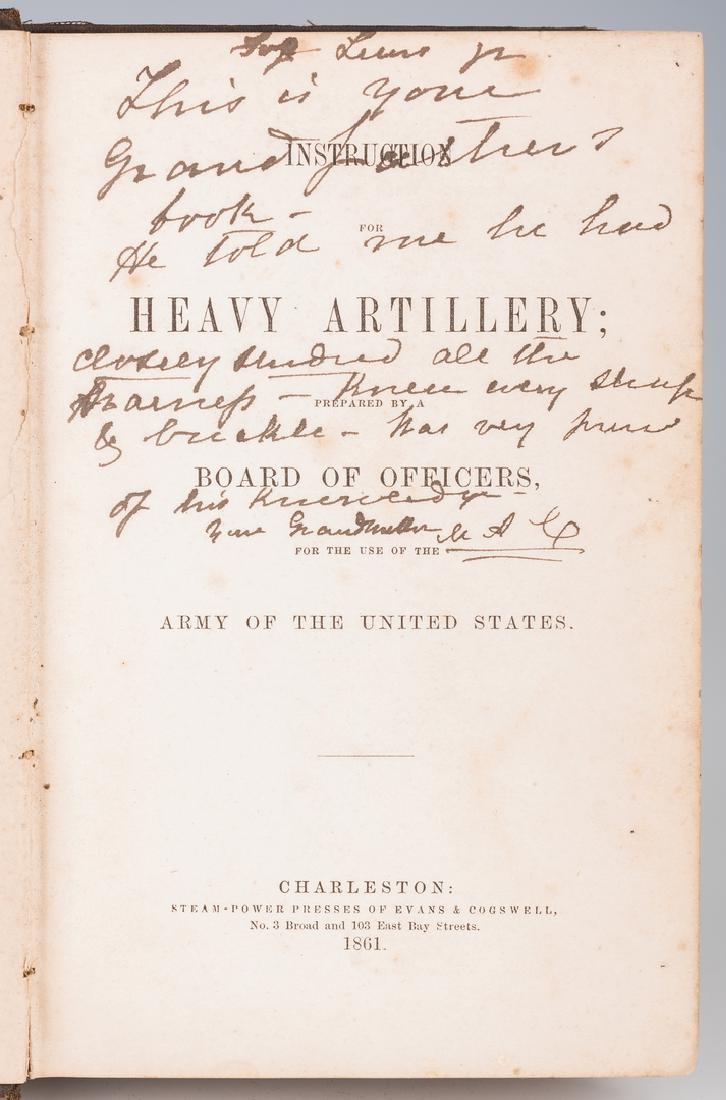 For Lewis Jr
This is your
Grandfather's
INSTRUCTION
book -
FOR
He told me he had
HEAVY ARTILLERY;
closely studied all the
Harness - Knew every strap
PREPARED BY A
& buckle - Was very proud
BOARD OF OFFICERS,
of his Knowledge -
Your Grandmother
FOR THE USE OF THE
ARMY OF THE UNITED STATES.
CHARLESTON:
STEAM-POWER PRESSES OF EVANS & COGSWELL,
No. 3 Broad and 103 East Bay Streets.
1861.